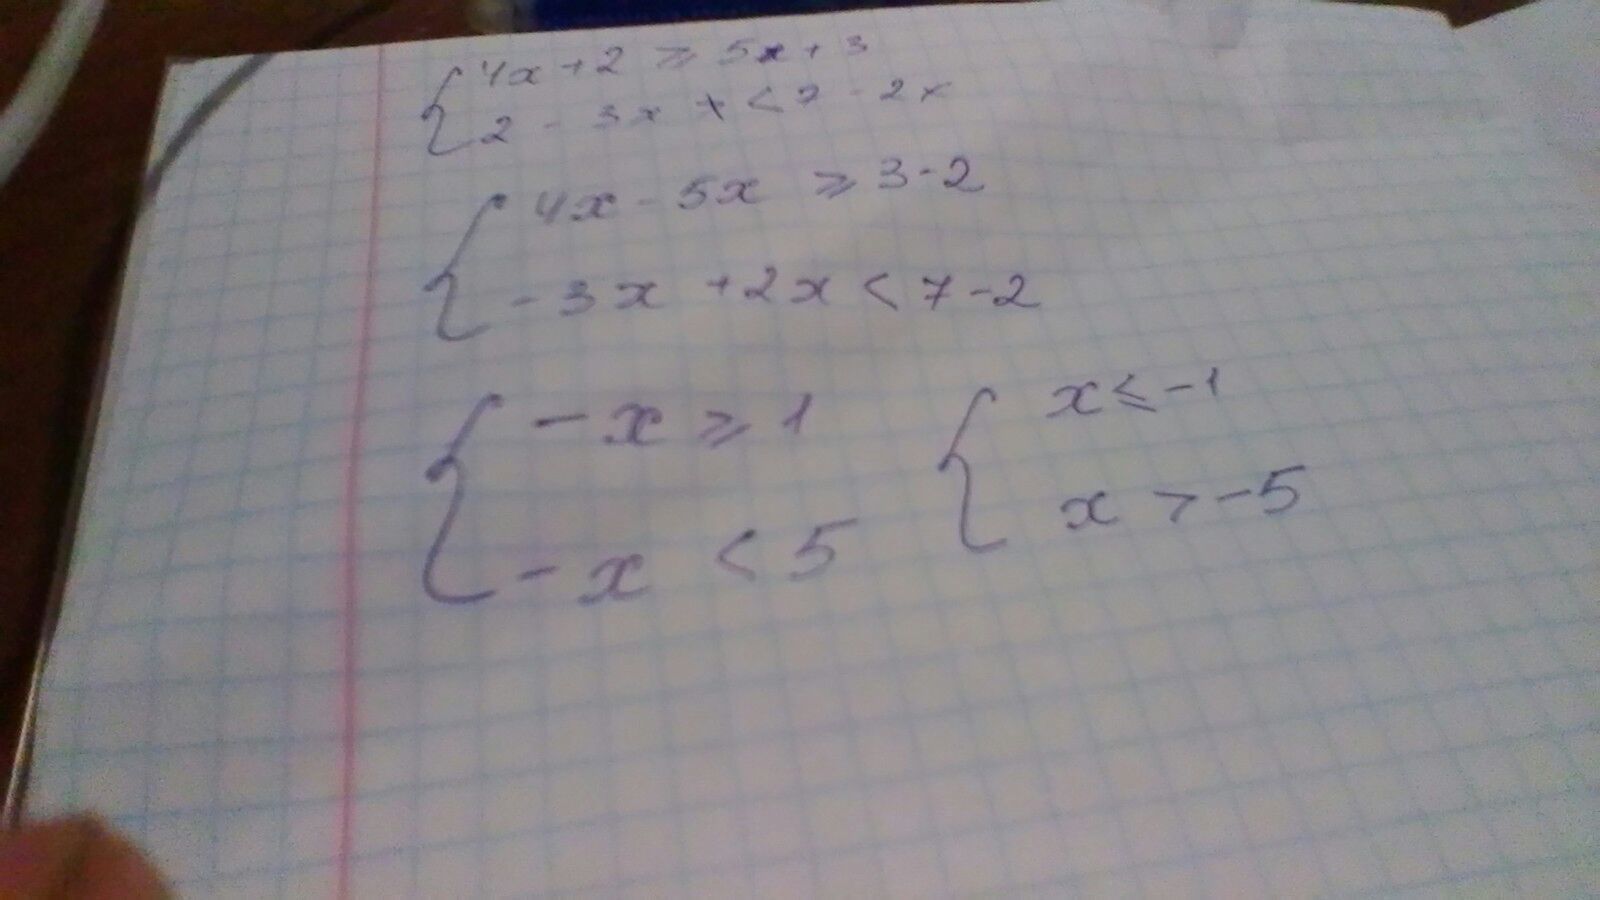 4x + 2 ≥ 5x + 3
2 - 3x < 7 - 2x
4x - 5x ≥ 3 - 2
-3x + 2x < 7 - 2
-x ≥ 1
-x < 5
x ≤ -1
x > -5